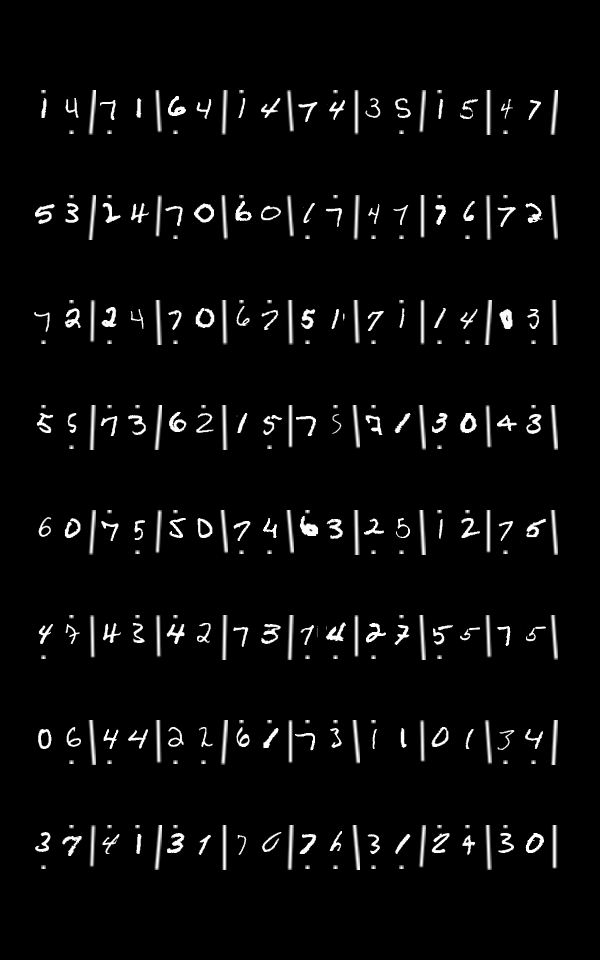 1 4 | 7 1 | 6 4 | 1 4 | 7 4 | 3 5 | 1 5 | 4 7 |
5 3 | 2 4 | 7 0 | 6 0 | 1 7 | 4 7 | 7 6 | 7 2 |
7 2 | 2 4 | 7 0 | 6 7 | 5 1 | 7 1 | 1 4 | 0 3 |
5 5 | 7 3 | 6 2 | 1 5 | 7 5 | 7 1 | 3 0 | 4 3 |
6 0 | 7 5 | 5 0 | 7 4 | 6 3 | 2 5 | 1 2 | 7 5 |
4 7 | 4 3 | 4 2 | 7 3 | 7 4 | 2 7 | 5 5 | 7 5 |
0 6 | 4 4 | 2 2 | 6 1 | 7 3 | 1 1 | 0 1 | 3 4 |
3 7 | 4 1 | 3 1 | 7 0 | 7 6 | 3 1 | 2 4 | 3 0 |